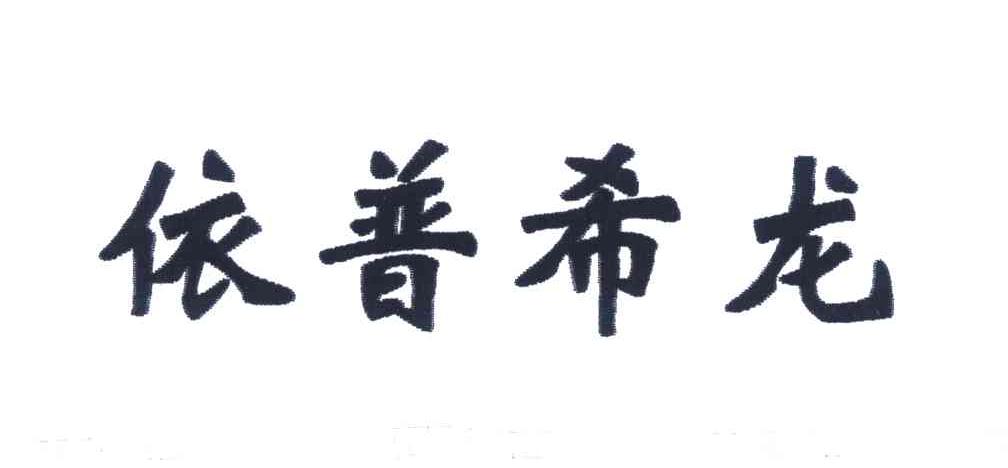 依普希龙